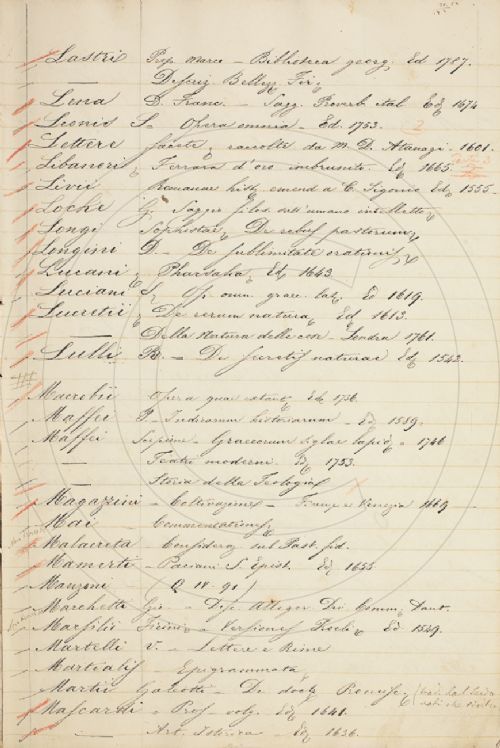 Lastri Prop. Marco - Biblioteca georg. Ed 1787.
— Descriz. Bellezz. Fir.
Lena D. Franc. - Sagg. Proverb ital Ed 1674
Leonis S. - Opera omnia - Ed. 1753.
Lettere facete raccolte da M. D. Attanagi. 1601.
Libanori Ferrara d'oro imbrunito. Ed. 1665.
Livii Romanae hist. emend a C. Sigonio Ed. 1555.
Locke G. Saggio filos. sull'umano intelletto
Longi Sophistae De rebus pastorum
Longini D. - De sublimitate orationis
Lucani Pharsalia Ed. 1643.
Luciani S. Op. omn. graec. lat. Ed 1619.
Lucretii De rerum natura Ed 1613.
— Della Natura delle cose - Londra 1761.
Lulli R. - De secretis naturae Ed 1542.
Macrobii Opera quae extant Ed. 1736.
Maffei P. Indiarum historiarum - Ed. 1589.
Maffei Scipione - Graecorum siglae lapid. - 1746
— Teatri moderni. Ed. 1753.
— Storia della Teologia
Magazzini - Coltivazione - Firenze e Venezia 1669
Mai - Commentationes
Malacreta - Consideraz. sul Past. fid.
Mamerti - Paciani S. Epist. Ed. 1655
Manzoni (Q IV - 91)
Marchetti Gio. - Disc. Allegor. Div. Comm. Dant.
Marsilii Ficini - Ed. 1549.
Martelli V. - Lettere e Rime
Martialis Epigrammata
Martii Galeotti - De doct.
Mascardi - Pros. volg. Ed. 1641.
— Art. Istorica - Ed. 1636.